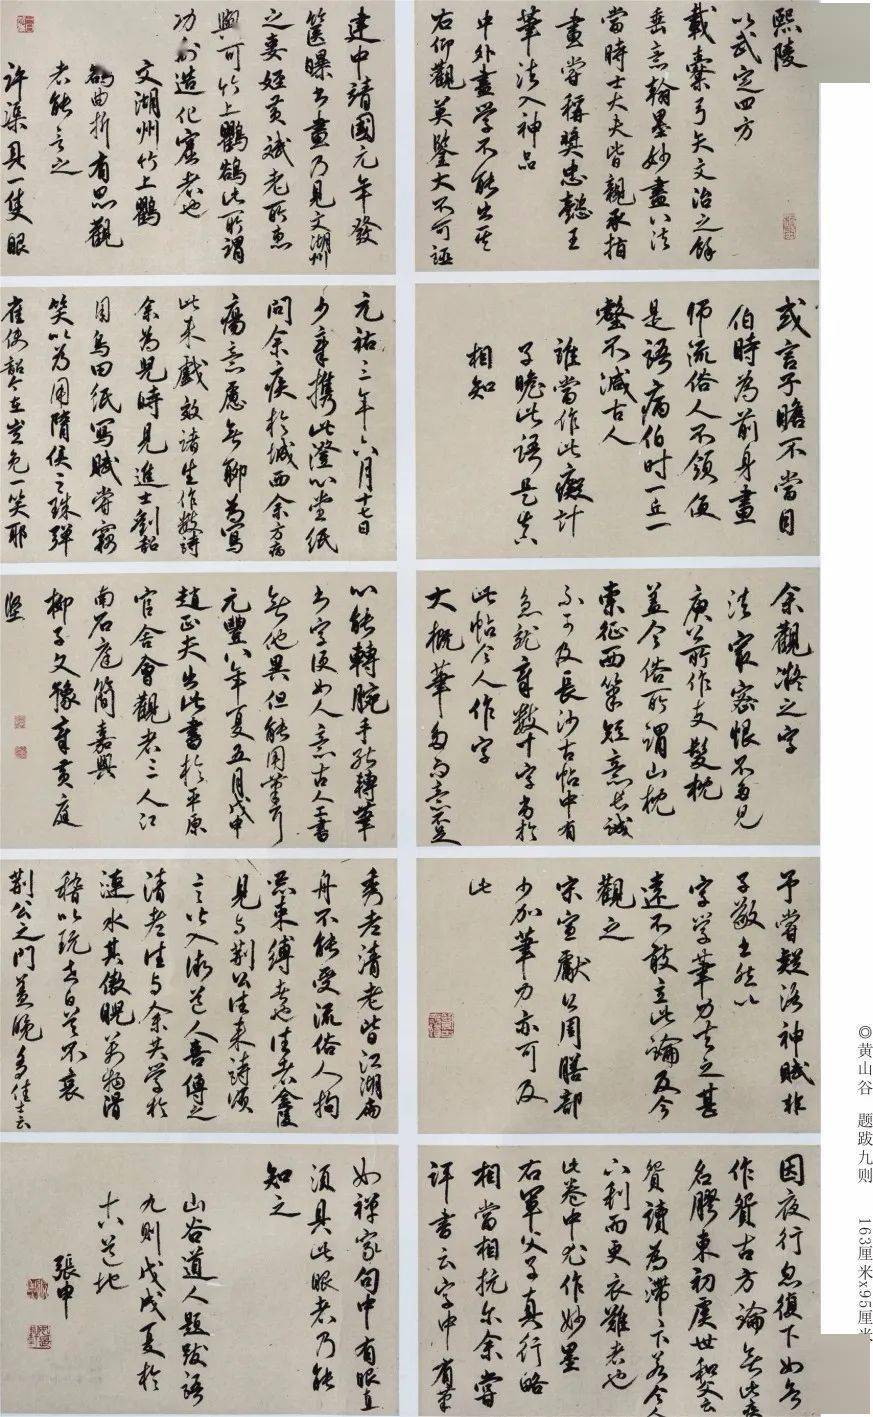 熙陵
以武定四方
載櫜弓矢文治之餘
垂意翰墨妙盡八法
當時士大夫皆親承指
畫嘗稱獎忠懿王
筆法入神品
中外書學不能出其
右仰觀英鑒大不可誣
建中靖國元年發
篋曝書畫乃見文湖州
之妻姪黃斌老所惠
與可竹上鸜鵒此所謂
功刮造化窟者也
文湖州竹上鸜
鵒曲折有思觀
者能言之
許渠具一隻眼
或言子瞻不當目
伯時為前身畫
師流俗人不領便
是語病伯時一丘一
壑不減古人
誰當作此癡計
子瞻此語是真
相知
元祐三年六月十七日
少章攜此澄心堂紙
問余疾於城西余方病
瘍意慮無聊為寫
此来戲效諸生作數詩
余為兒時見進士劉韶
用烏田紙寫賦嘗竊
笑以為用隋侯之珠彈
雀使韶今在豈免一笑耶
余觀凝之字
法最密恨不多見
庾公所作支髮枕
蓋今俗所謂山枕
索征西筆短意長誠
不可及長沙古帖中有
急就章數十字劣於
此帖今人作字
大概筆多而意不足
心能轉腕手能轉筆
書字便如人意古人工書
無他異但能用筆耳
元豐八年夏五月戊申
趙正夫出此書於平原
官舍會觀者三人江
南石庭簡嘉興
柳子文豫章黃庭
堅
予嘗疑洛神賦非
子敬書然以
字學筆力去之甚
遠不敢立此論及今
觀之
宋宣獻公周膳部
少加筆力亦可及
此
秀老清老皆江湖扁
舟不能受流俗人拘
忌束縛者也往者金陵
見與荊公往来詩頌
言皆入微道人喜傳之
清老往與余共學於
漣水其傲睨萬物滑
稽以玩世白首不衰
荊公之門蓋晚多佳士云
因夜行忽復下如無
作質古方論無此疾
名膠東初虞世和父云
質讀為滯下若今人
下利而更衣難者也
此卷中尤作妙墨
右軍父子真行略
相當相抗尔余嘗
評書云字中有筆
如禪家句中有眼直
須具此眼者乃能
知之
山谷道人題跋語
九則戊戌夏於
古道地
張申
◎黄山谷 题跋九则 163厘米x95厘米